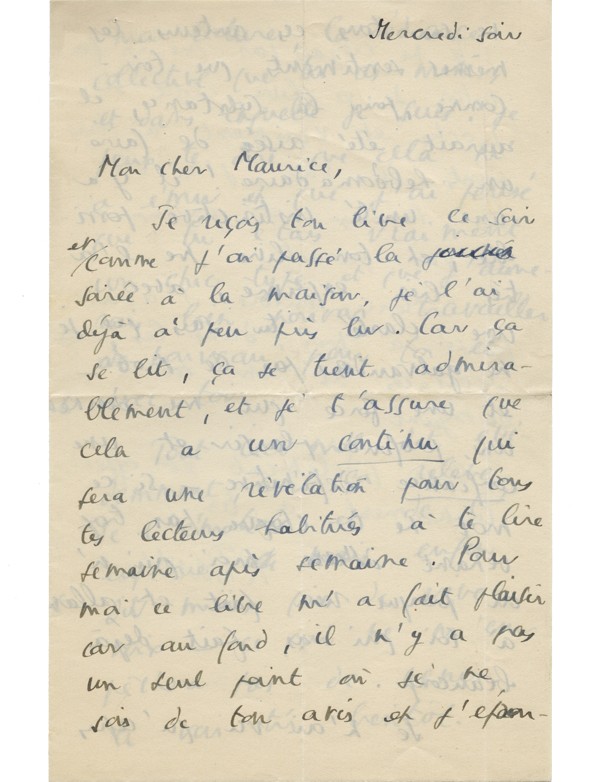 Mercredi soir
Mon cher Maurice,
Je reçois ton livre ce soir
et comme j'ai passé la journée
soirée à la maison, je l'ai
déjà à peu près lu. Car ça
se lit, ça se tient admira-
blement, et je t'assure que
cela a un continu qui
sera une révélation pour tous
tes lecteurs habitués à te lire
semaine après semaine. Pour
moi ce livre m'a fait plaisir
car au fond, il n'y a pas
un seul point où je ne
sois de ton avis et j'épou-